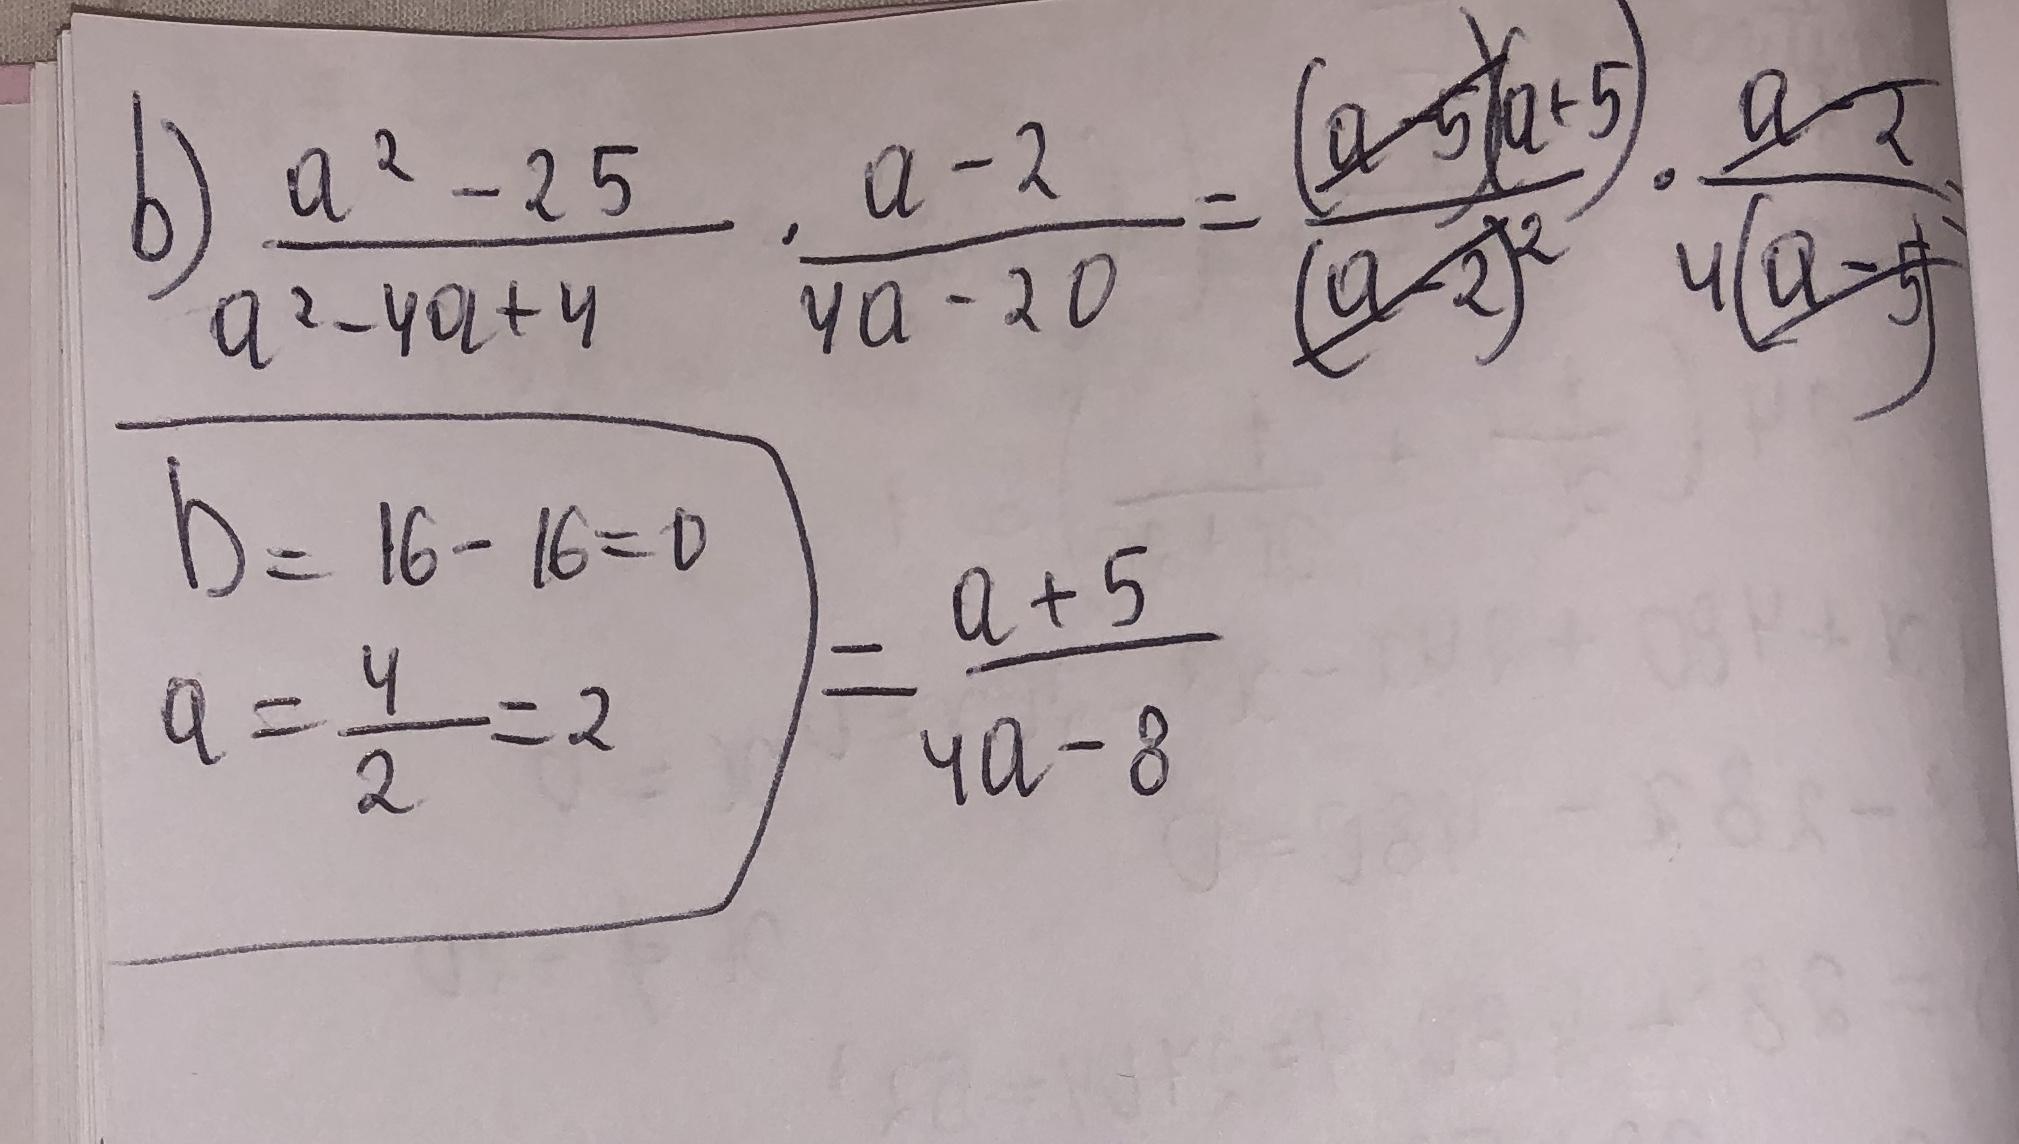 b) a² - 25 / a² - 4a + 4 · a - 2 / 4a - 20 = (a-5)(a+5) / (a-2)² · a-2 / 4(a-5) =
D = 16 - 16 = 0
a = 4/2 = 2
= a + 5 / 4a - 8